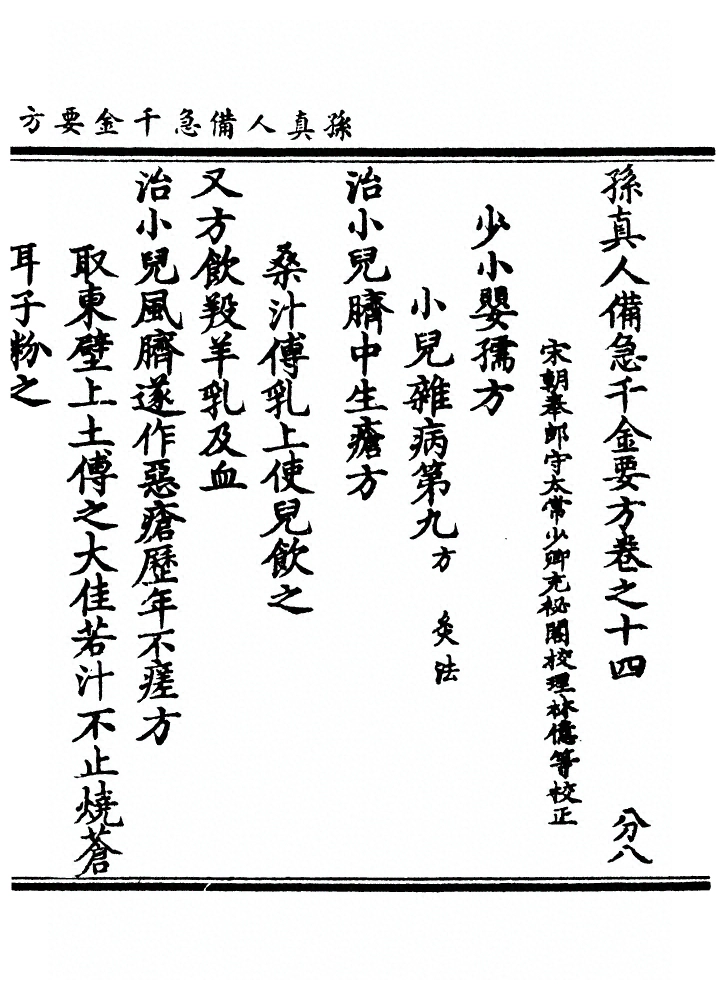 孫真人備急千金要方
孫真人備急千金要方卷之十四 分八
宋朝奉郎守太常少卿充祕閣校理林億等校正
少小嬰孺方
小兒雜病第九 方 灸法
治小兒臍中生瘡方
桑汁傅乳上使兒飲之
又方飲羖羊乳及血
治小兒風臍遂作惡瘡歷年不瘥方
取東壁上土傅之大佳若汁不止燒蒼
耳子粉之